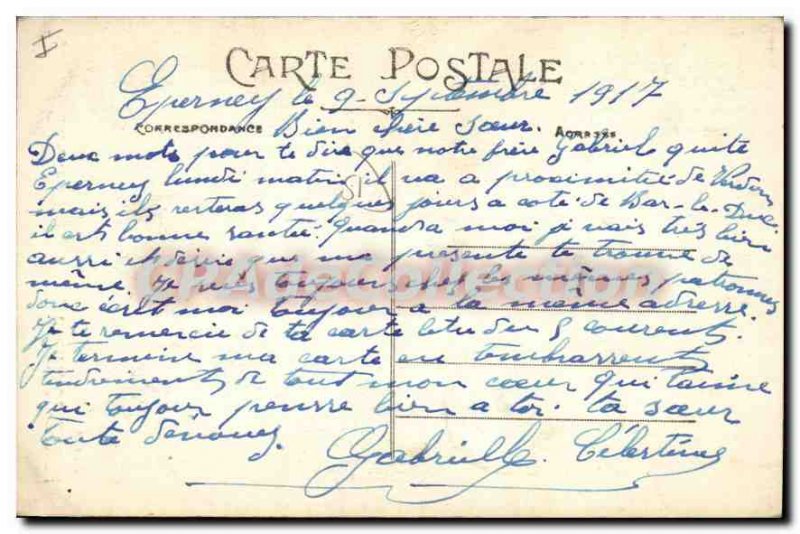 I
CARTE POSTALE
Epernay le 9 - Septembre 1917
CORRESPONDANCE Bien chère Sœur. ADRESSE
Deux mots pour te dire que notre frère Gabriel quite
Epernay lundi matin il va a proximitié de Verdun
mais ils resteras quelques jours a coté de Bar-le-Duc
il est bonne santé. Quand a moi j vais très bien
aussi et désir que ma présente te trouve de
même. Je suis toujours chez le mêmes patronnes
donc écrit moi toujour a la même adresse.
Je te remercie de ta carte letu du 5 courent.
Je termine ma carte en tembrassent
tendrements de tout mon cœur qui taime
qui toujour pensse bien a toi. ta sœur
toute dévouez. Gabrielle. Célestine
CPAdeCollection